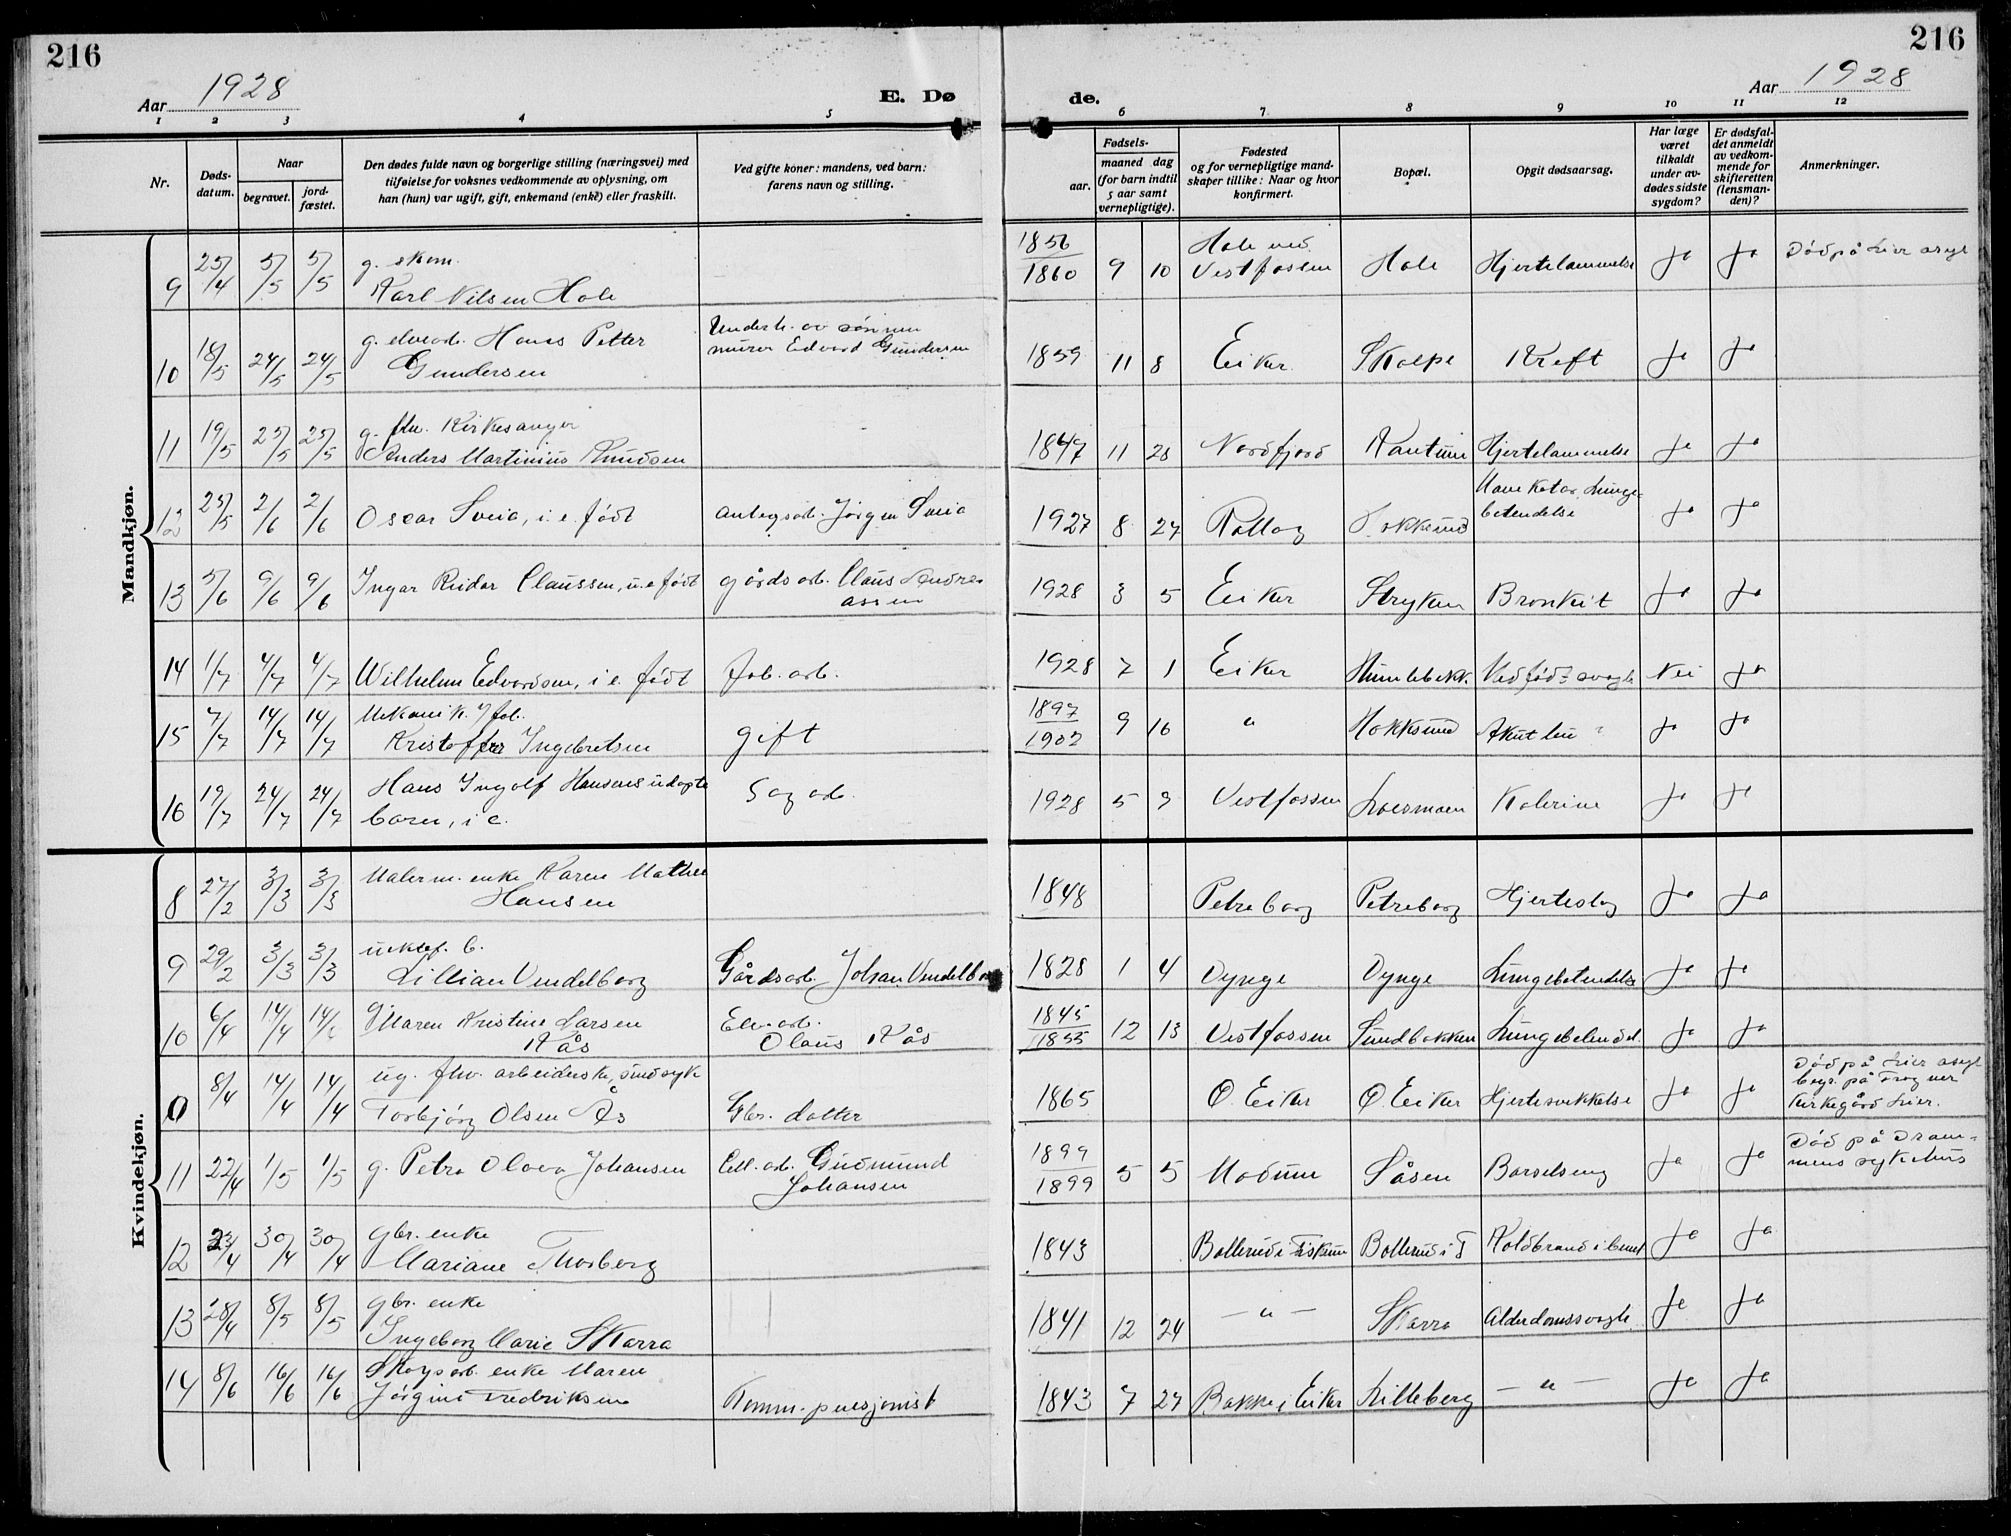 216
216
Aar 1928
E. Dø
de.
Aar 1928
1 2 3 4 5 6 7 8 9 10 11 12
Nr.
Døds-
datum.
Naar
begravet.
jord-
fæstet.
Den dødes fulde navn og borgerlige stilling (næringsvei) med
tilføielse for voksnes vedkommende av oplysning, om
han (hun) var ugift, gift, enkemand (enke) eller fraskilt.
Ved gifte koner: mandens, ved barn:
farens navn og stilling.
Fødsels-
aar.
maaned dag
(for barn indtil
5 aar samt
vernepligtige).
Fødested
og for vernepligtige mand-
skaper tillike: Naar og hvor
konfirmert.
Bopæl.
Opgit dødsaarsag.
Har læge
været
tilkaldt
under av-
dødes sidste
sygdom?
Er dødsfal-
det anmeldt
av vedkom-
mende for
skifteretten
(lensman-
den)?
Anmerkninger.
Mandkjøn.
9 25/4 5/5 5/5 g. skom.
Karl Nilsen Hole
1856
1860 9 10 Hole ved
Vestfossen Hole Hjertelammelse Ja Ja Død på Lier asyl
10 18/5 24/5 24/5 g. elvearb. Hans Petter
Gundersen
Underh. av sønnen
murer Edvard Gundersen
1859 11 8 Eiker Skolpe Kreft Ja Ja
11 19/5 25/5 25/5 g. fhv. Kirkesanger
Anders Martinius Knudsen
1847 11 28 Nordfjord Hjertelammelse Ja Ja
12 25/5 2/6 2/6 Oscar Sveia, i.e. født
anlegsarb. Jørgen Sveia
1927 8 27 Rollag Hokksund Lunge-
betendelse Ja Ja
13 5/6 9/6 9/6 Ingar Reidar Claussen, u.e. født
gårdsarb. Claus Andre-
assen
1928 3 5 Eiker Stryken Bronkit Ja Ja
14 1/7 4/7 4/7 Wilhelm Edvardsen, i.e. født fab. arb.
1928 7 1 Eiker Humlebekk. Medfødt svagh. Nei Ja
15 7/7 14/7 14/7 Mekanik. v/ fab.
Kristoffer Ingebretsen gift
1897
1902 9 16 " Hokksund Akut Ja Ja
16 19/7 24/7 24/7 Hans Ingolf Hansens udøpte
barn, i.e. Sagarb.
1928 5 9 Vestfossen Loesmoen Kolerine Ja Ja
Kvindekjøn.
8 27/2 3/3 3/3 Malerm. enke Karen Mathea
Hansen
1848 Petreborg Petreborg Hjerteslag Ja Ja
9 29/2 3/3 3/3 uektef. b.
Lillian Vendelborg Gårdsarb. Johan Vendelborg
1828 1 4 Dynge Dynge Lungebetendelse Ja Ja
10 6/4 14/4 14/4 g Maren Kristine Larsen
Kås
Elvearb.
Olaus Kås
1845
1855 12 13 Vestfossen Sundbakken Lungebetendel. Ja Ja
0 8/4 14/4 14/4 ug. fhv. arbeiderske, sindsyk
Torbjørg Olsen Ås Gbr. datter
1865 Ø. Eiker Ø. Eiker Hjertesvekkelse Ja Ja
Død på Lier asyl
begr. på Frogner
Kirkegård Lier.
11 22/4 1/5 1/5 g. Petra Olava Johansen
Cell. arb. Gudmund
Johansen
1899
1899 5 5 Modum Såsen Barselseng Ja Ja
Død på Dram-
mens sykehus
12 23/4 30/4 30/4 gbr. enke
Mariane Thorberg
1843 Bollerud i Fiskum Bollerud i F Koldbrand i benet Ja Ja
13 28/4 8/5 8/5 gbr. enke
Ingeborg Marie Skarra
1841 12 24 — " — Skarra Alderdomssvagh. Ja Ja
14 8/6 16/6 16/6 Skogsarb. enke Maren
Jørgine Fredriksen Komm. pensjonist
1843 7 27 Bakke i Eiker Lilleberg — " — Ja Ja